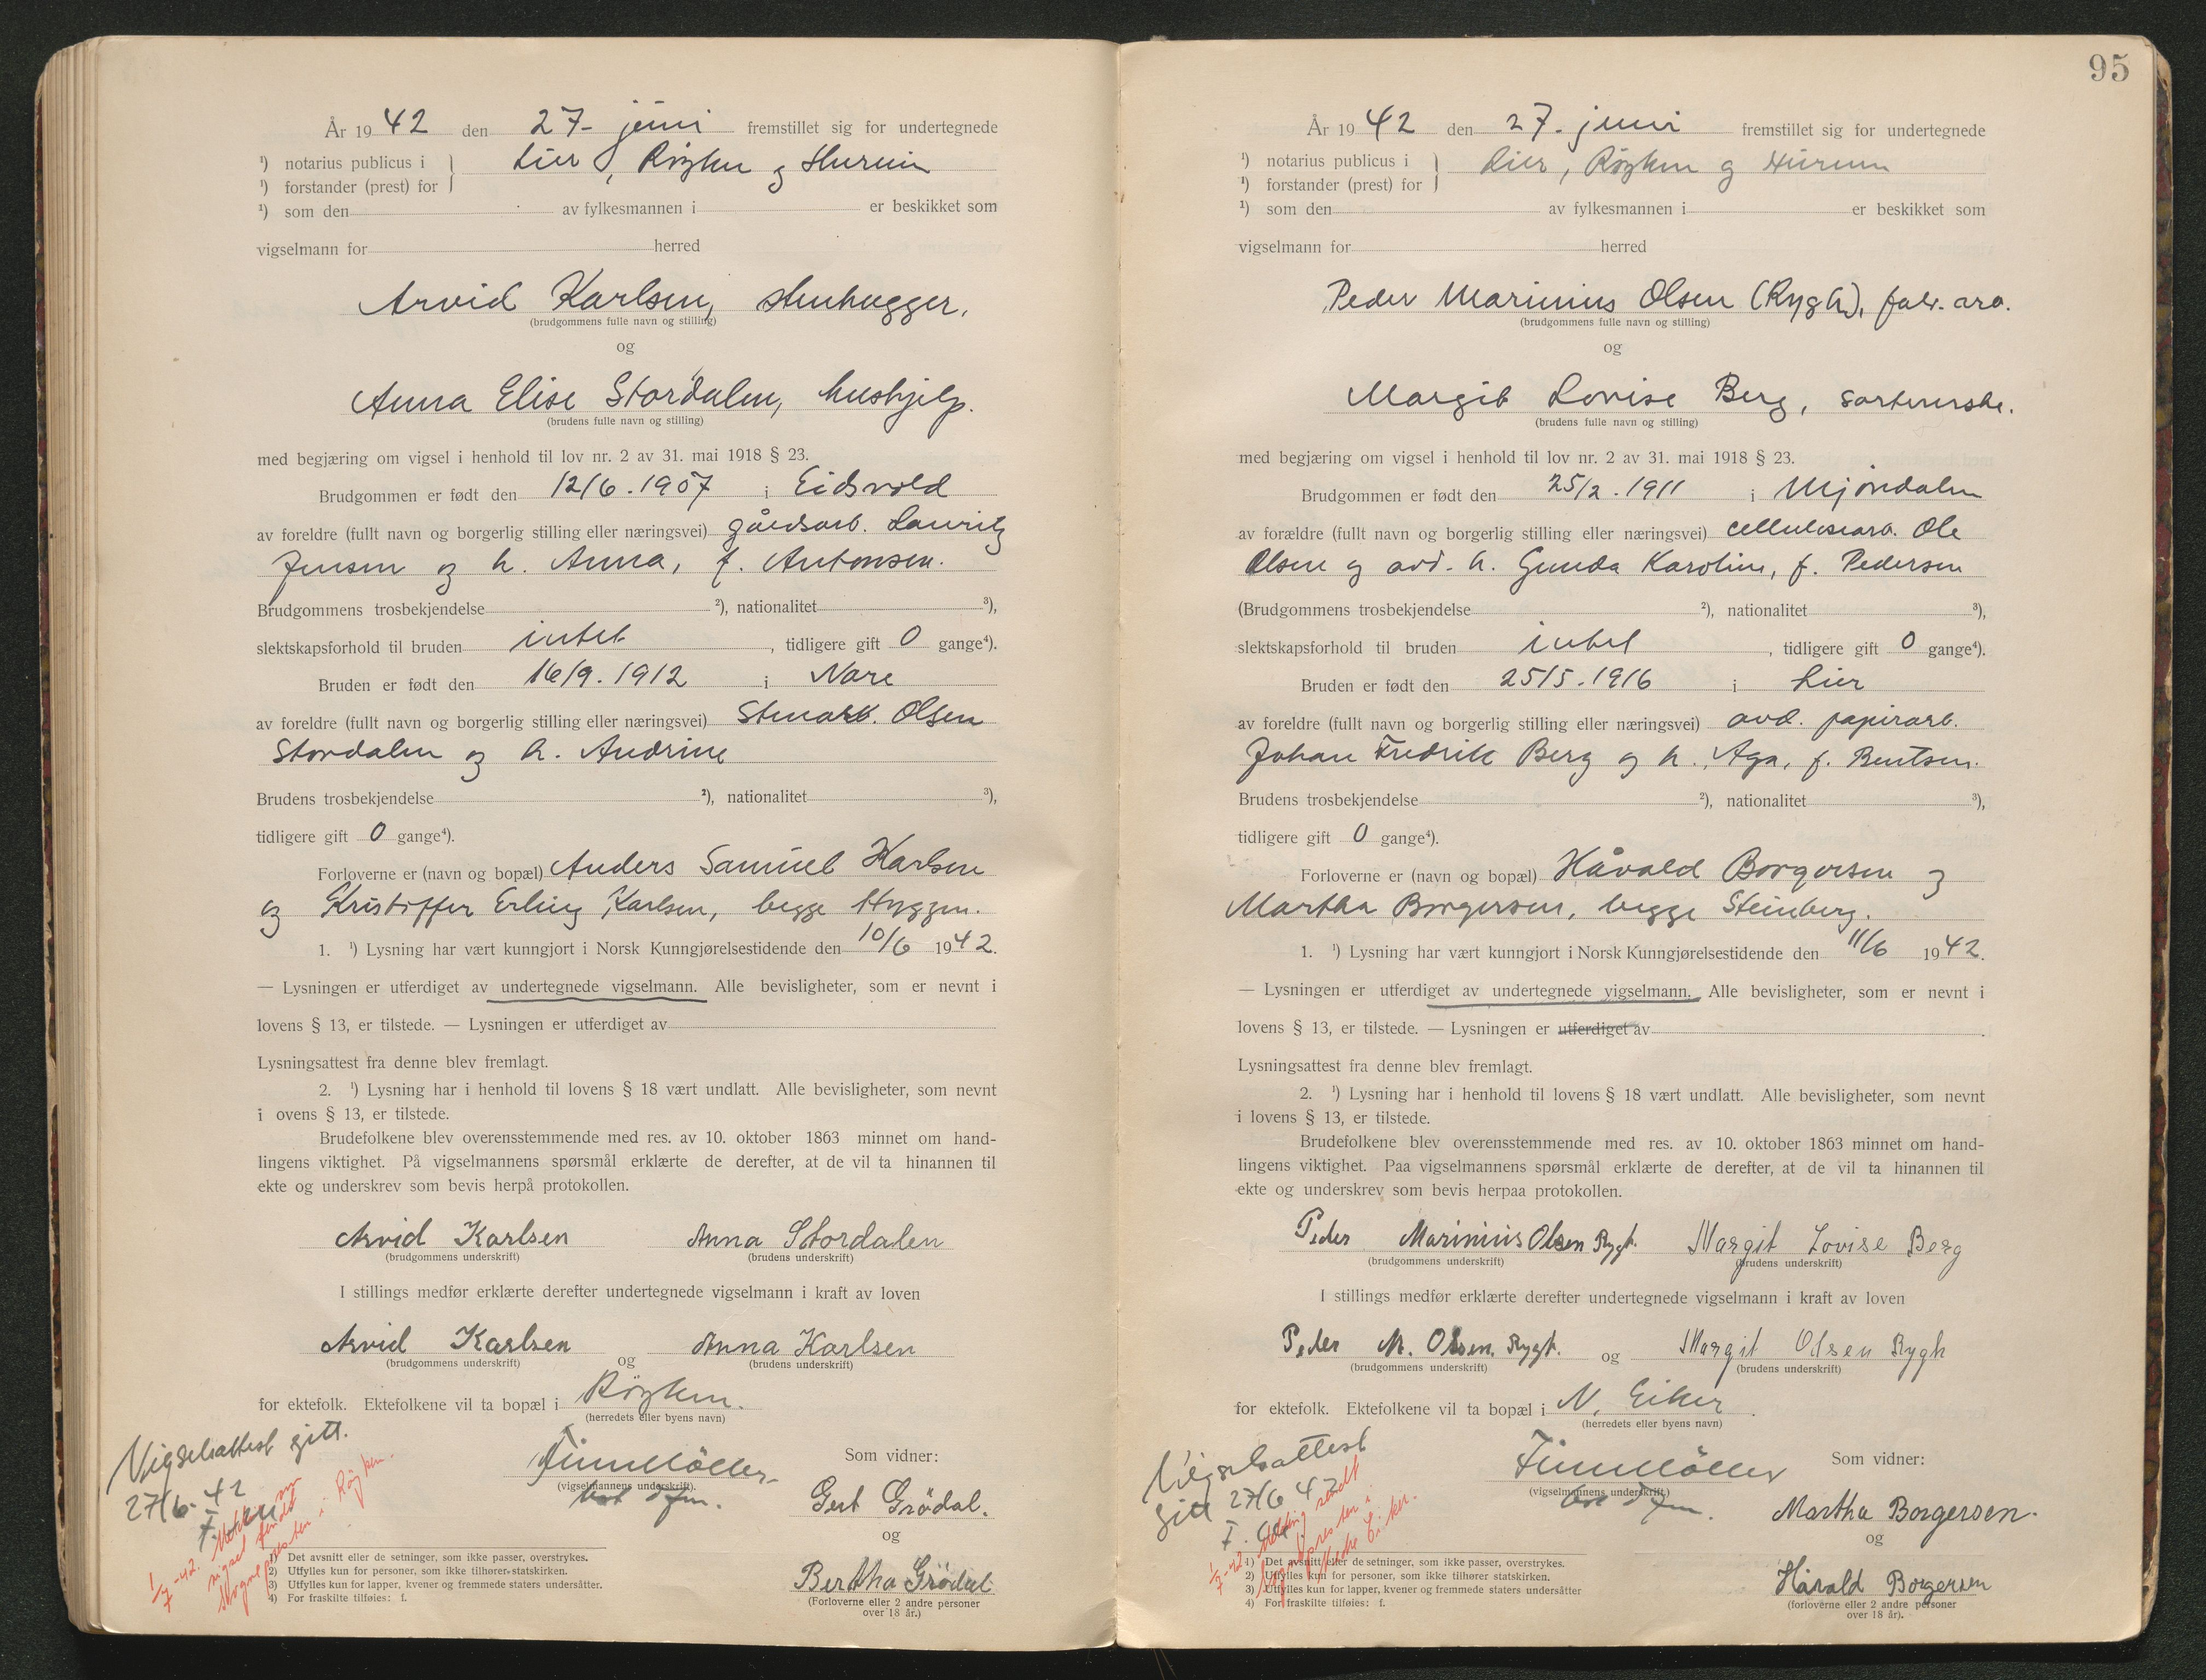 År 1942 den 27- juni fremstillet sig for undertegnede
¹) notarius publicus i
¹) forstander (prest) for
Lier, Røyken og Hurum
¹) som den av fylkesmannen i er beskikket som
vigselmann for herred
Arvid Karlsen, stenhugger,
(brudgommens fulle navn og stilling)
og
Anna Elise Stordalen, hushjelp.
(brudens fulle navn og stilling)
med begjæring om vigsel i henhold til lov nr. 2 av 31. mai 1918 § 23.
Brudgommen er født den 12/6.1907 i Eidsvold
av foreldre (fullt navn og borgerlig stilling eller næringsvei) gårdsarb. Lauritz
Jensen og h. Anna, f. Antonsen.
Brudgommens trosbekjendelse ²), nationalitet ³),
slektskapsforhold til bruden intet, tidligere gift 0 gange⁴).
Bruden er født den 16/9.1912 i Nore
av foreldre (fullt navn og borgerlig stilling eller næringsvei) Stenarb. Olsen
Stordalen og h. Andrine
Brudens trosbekjendelse ²), nationalitet ³),
tidligere gift 0 gange⁴).
Forloverne er (navn og bopæl) Anders Samuel Karlsen
og Kristoffer Erling Karlsen, begge Hyggen.
1. ¹) Lysning har vært kunngjort i Norsk Kunngjørelsestidende den 10/6 1942.
— Lysningen er utferdiget av undertegnede vigselmann. Alle bevisligheter, som er nevnt i
lovens § 13, er tilstede. — Lysningen er utferdiget av
Lysningsattest fra denne blev fremlagt.
2. ¹) Lysning har i henhold til lovens § 18 vært undlatt. Alle bevisligheter, som nevnt
i ovens § 13, er tilstede.
Brudefolkene blev overensstemmende med res. av 10. oktober 1863 minnet om hand-
lingens viktighet. På vigselmannens spørsmål erklærte de derefter, at de vil ta hinannen til
ekte og underskrev som bevis herpå protokollen.
Arvid Karlsen Anna Stordalen
(brudgommens underskrift) (brudens underskrift)
I stillings medfør erklærte derefter undertegnede vigselmann i kraft av loven
Arvid Karlsen og Anna Karlsen
(brudgommens underskrift) (brudens underskrift)
for ektefolk. Ektefolkene vil ta bopæl i Røyken.
(herredets eller byens navn)
Vigselsattest gitt.
27/6-42
Finn Möller
(vigselmannens underskrift).
Som vidner:
Gert Grödal.
og
Bertha Grödal
(Forloverne eller 2 andre personer
over 18 år.)
1/7-42. Melding om
vigsel sendt
Sognepresten i Røyken.
1) Det avsnitt eller de setninger, som ikke passer, overstrykes.
2) Utfylles kun for personer, som ikke tilhører statskirken.
3) Utfylles kun for lapper, kvener og fremmede staters undersåtter.
4) For fraskilte tilføies: f.
95
År 1942 den 27. juni fremstillet sig for undertegnede
¹) notarius publicus i
¹) forstander (prest) for
Lier, Røyken og Hurum
¹) som den av fylkesmannen i er beskikket som
vigselmann for herred
Peder Marinius Olsen (Rygh), fabr. arb.
(brudgommens fulle navn og stilling)
og
Margit Lovise Berg, sorterske.
(brudens fulle navn og stilling)
med begjæring om vigsel i henhold til lov nr. 2 av 31. mai 1918 § 23.
Brudgommen er født den 25/2.1911 i Mjøndalen
av forældre (fullt navn og borgerlig stilling eller næringsvei) cellulosearb. Ole
Olsen og avd. h. Gunda Karoline, f. Pedersen
(Brudgommens trosbekjendelse ²), nationalitet ³),
slektskapsforhold til bruden intet, tidligere gift 0 gange⁴).
Bruden er født den 25/5.1916 i Lier
av foreldre (fullt navn og borgerlig stilling eller næringsvei) avd. papirarb.
Johan Fredrik Berg og h. Aga, f. Bentsen.
Brudens trosbekjendelse ²), nationalitet ³),
tidligere gift 0 gange⁴).
Forloverne er (navn og bopæl) Håvald Borgersen og
Martha Borgersen, begge Steinberg.
1. ¹) Lysning har vært kunngjort i Norsk Kunngjørelsestidende den 11/6 1942.
— Lysningen er utferdiget av undertegnede vigselmann. Alle bevisligheter, som er nevnt i
lovens § 13, er tilstede. — Lysningen er utferdiget av
Lysningsattest fra denne blev fremlagt.
2. ¹) Lysning har i henhold til lovens § 18 vært undlatt. Alle bevisligheter, som nevnt
i lovens § 13, er tilstede.
Brudefolkene blev overensstemmende med res. av 10. oktober 1863 minnet om hand-
lingens viktighet. Paa vigselmannens spørsmål erklærte de derefter, at de vil ta hinannen til
ekte og underskrev som bevis herpaa protokollen.
Peder Marinius Olsen Rygh. Margit Lovise Berg
(brudgommens underskrift) (brudens underskrift)
I stillings medfør erklærte derefter undertegnede vigselmann i kraft av loven
Peder M. Olsen Rygh. og Margit Olsen Rygh
(brudgommens underskrift) (brudens underskrift)
for ektefolk. Ektefolkene vil ta bopæl i N. Eiker.
(herredets eller byens navn)
Vigselsattest
gitt 27/6 42
Finn Möller
(vigselmannens underskrift)
Som vidner:
Martha Borgersen.
og
Håvald Borgersen
(forloverne eller 2 andre personer
over 18 år).
1/7-42. Melding sendt
Sognepresten i
Nedre Eiker.
1) Det avsnitt eller de setninger, som ikke passer, overstrykes.
2) Utfylles kun for personer, som ikke tilhører statskirken.
3) Utfylles kun for lapper, kvener og fremmede staters undersåtter
4) For fraskilte tilføies: f.